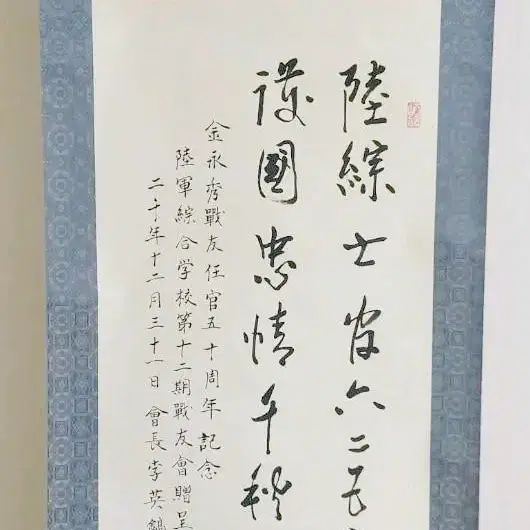 陸綜士官六二五
護國忠情千秋
金永秀戰友任官五十周年記念
陸軍綜合学校第十二期戰友會贈呈
二千年十二月三十一日 會長李英鶴